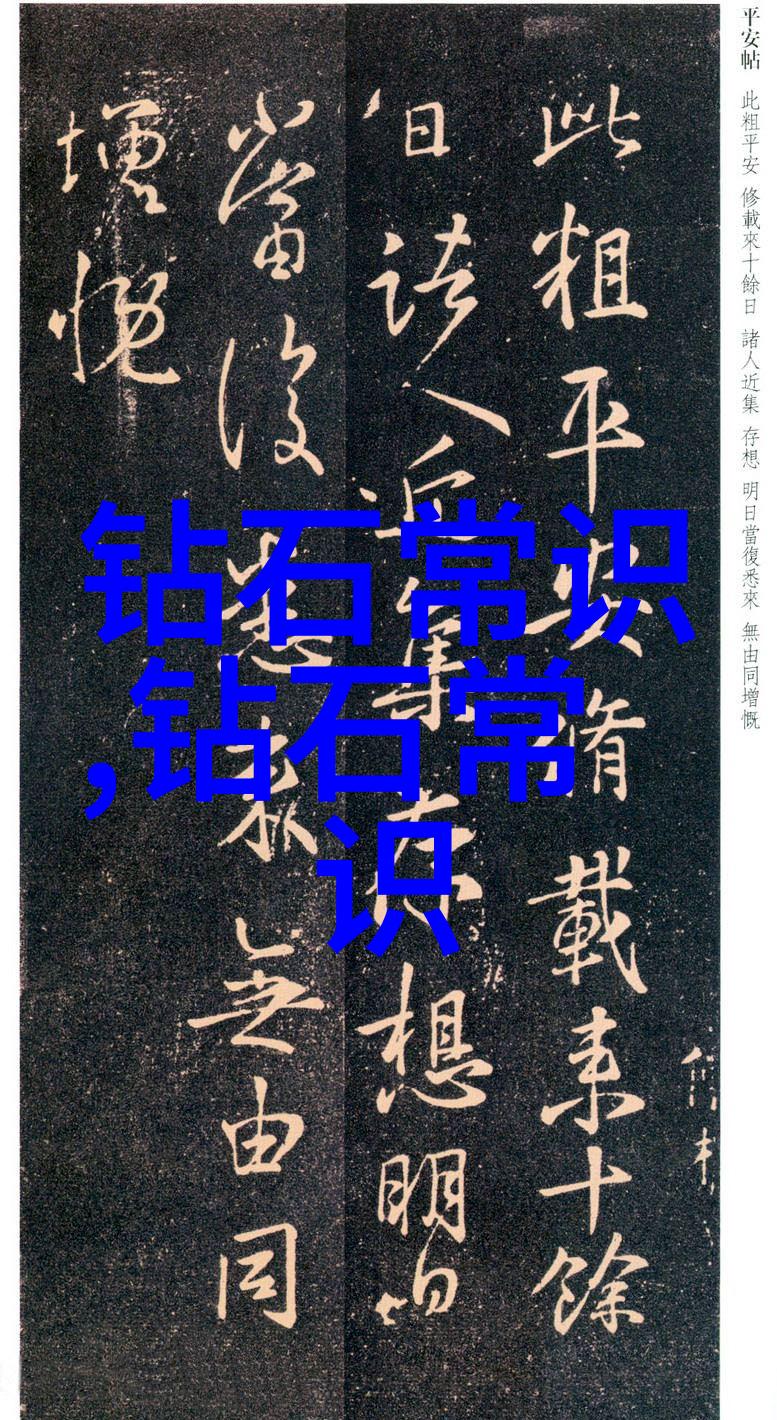 平安帖 此粗平安 修載來十餘日 諸人近集 存想 明日當復悉來 無由同增慨
此粗平安脩載来十餘
日諸人近集存想明日
當復悉来無由同
增慨
钻石常识
,钻石常
识